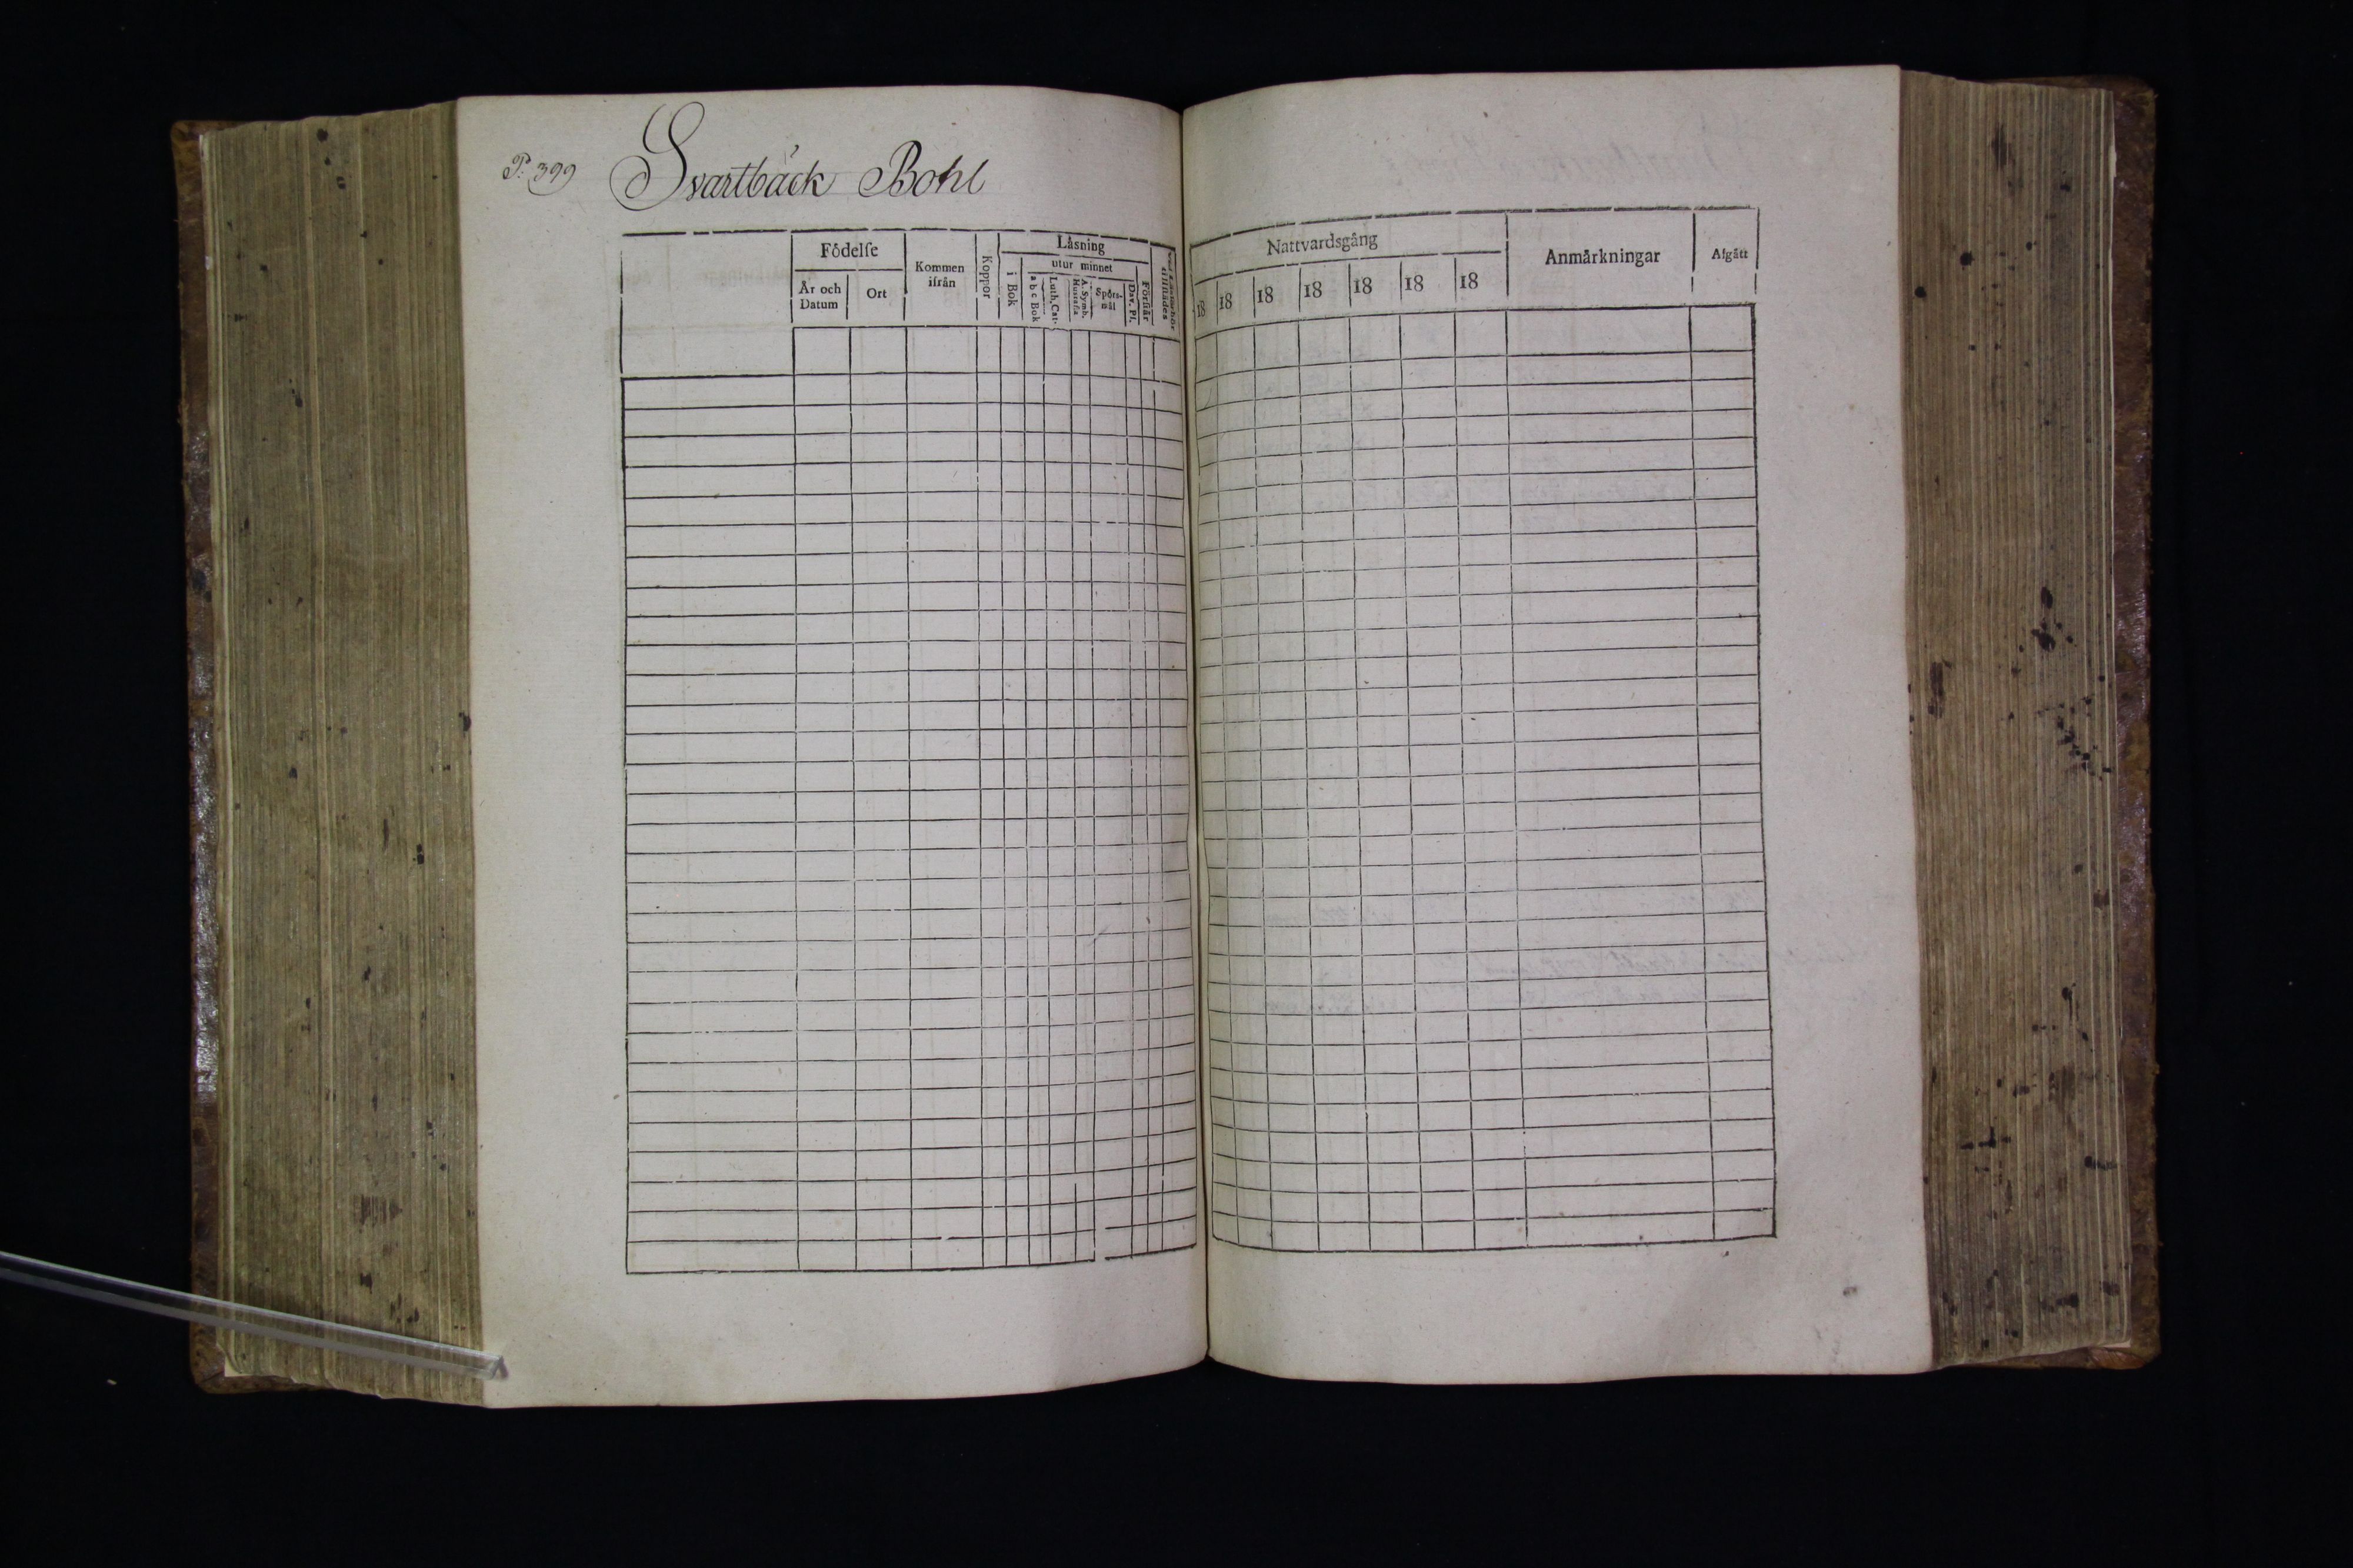 P. 399 Svartbäck Bohl
Födelſe
År och Datum
Ort
Kommen ifrån
Koppor
Läsning
i Bok
utur minnet
a b c Bok
Luth. Cat.
A. Symb. Hustafla
Spörsmål
Dav. Ps.
Förſtår
Nattvardsgång
18 18 18 18 18 18 18
Anmärkningar
Afgått